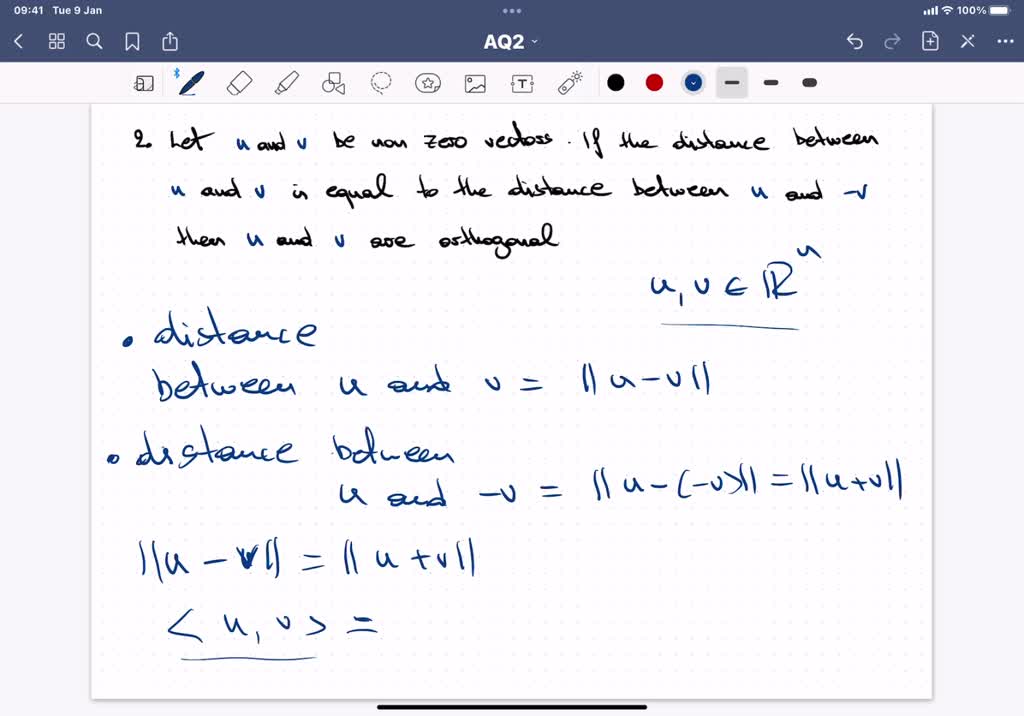 09:41 Tue 9 Jan
100%
AQ2
2. Let u and v be non zero vectors. If the distance between
u and v is equal to the distance between u and -v
then u and v are orthogonal
u, v ∈ ℝⁿ
• distance
between u and v = ||u - v||
• distance between
u and -v = ||u - (-v)|| = ||u + v||
||u - v|| = ||u + v||
< u, v > =